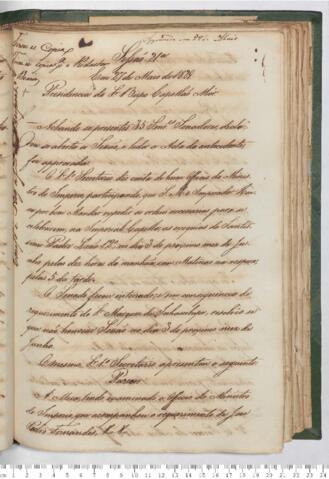 Sessão 21ª
Em 27 de Maio de 1828
Presidencia do Sr. Bispo Capellão Mór
Achando-se presentes 33 Senrs. Senadores, decla-
rou-se aberta a Sessão, e lida a Acta da antecedente
foi approvada.
O Sr. 1º Secretario deu conta de hum Officio do Minis-
tro do Imperio, participando, que S. M. o Imperador
por bem Mandar expedir as ordens necessarias para se
celebrarem, na Imperial Capella, as exequias do
Padre Leão 12º, no dia 3 do proximo mez de Ju-
nho pelas dez horas da manhãa, com Matinas na vespera
pelas 5 da tarde.
O Senado ficou inteirado; e em consequencia do
requerimento do Sr. Marquez de Inhambupe, resolveo-se
que não houvesse Sessão no dia 3 do proximo mez de
Junho.
O mesmo Sr. 1º Secretario apresentou o seguinte
Parecer
A Mesa, tendo examinado o Officio do Ministro
do Imperio que acompanhou o requerimento de José
Pedro Fernandes, &. &.
cm 1 2 3 4 5 6 7 8 9 10 11 12 13 14 15 16 17 18 19 20 21 22 23 24